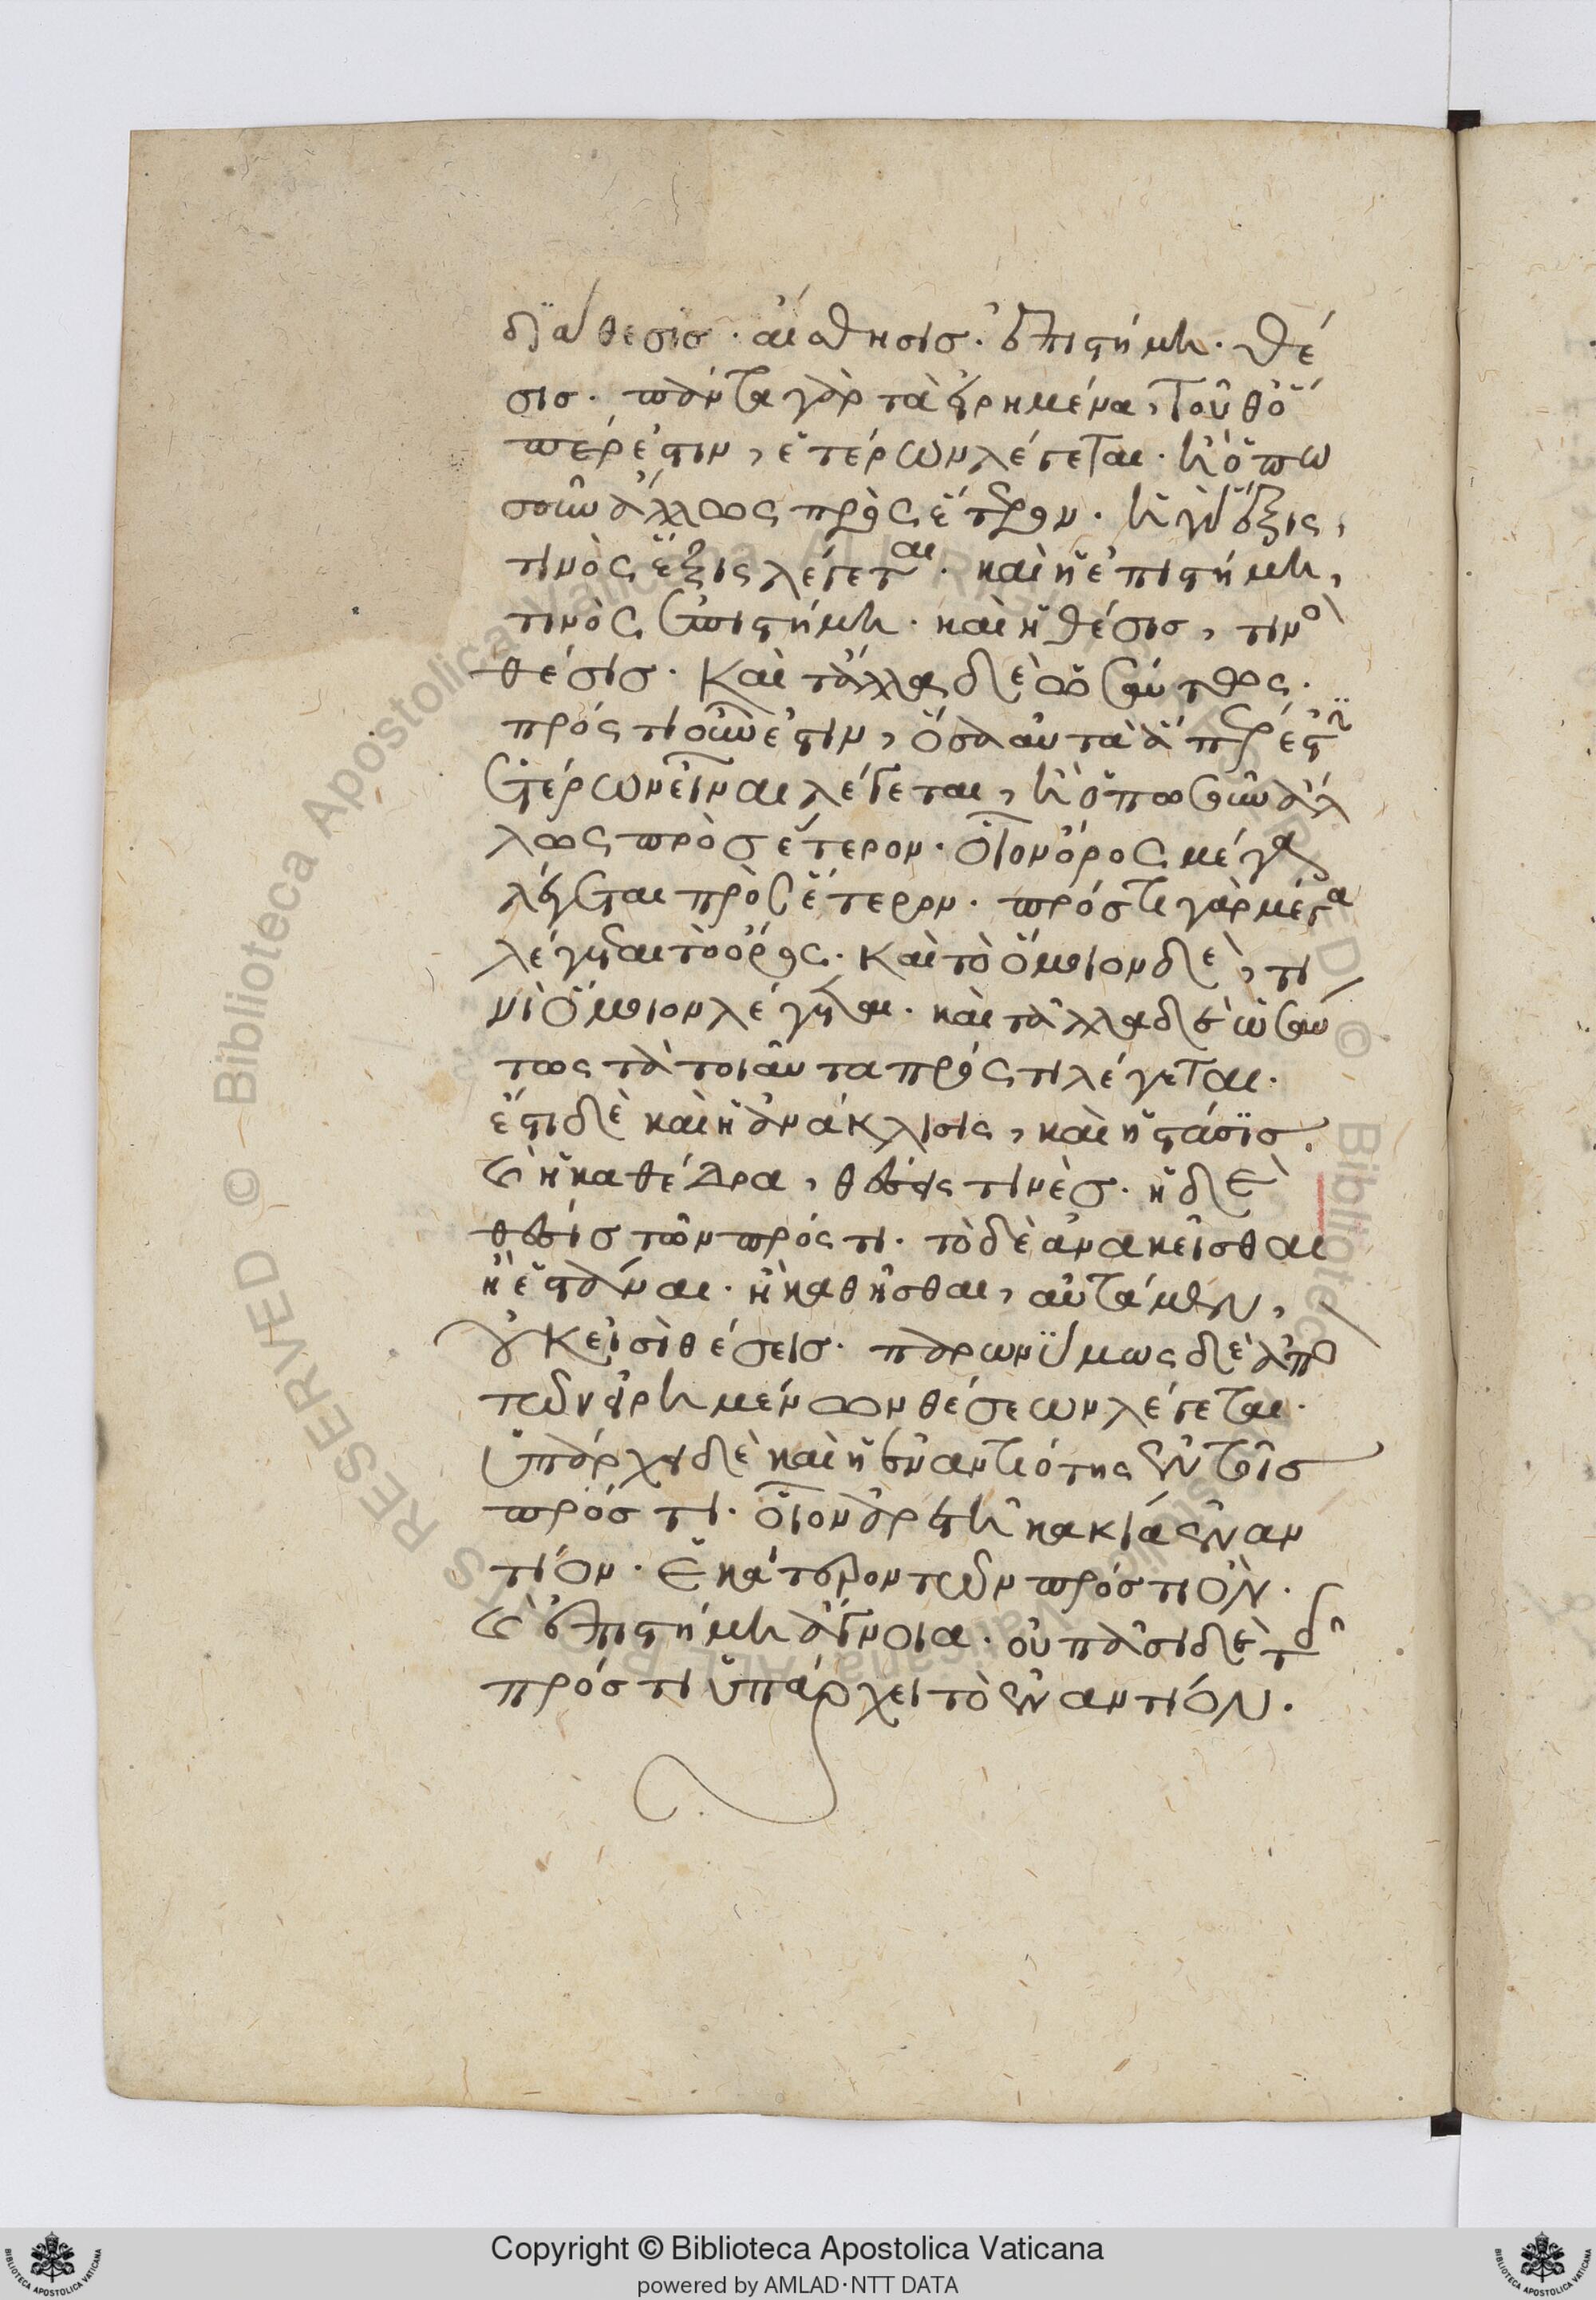 διάθεσις · αἴσθησις · ἐπιστήμη · θέ
σις · πάντα γὰρ τὰ εἰρημένα, τοῦθ' ὅ
περ ἐστιν, ἑτέρων λέγεται · ἢ ὁπω
σοῦν ἄλλως πρὸς ἕτερον · ἡ γὰρ ἕξις,
τινὸς ἕξις λέγεται · καὶ ἡ ἐπιστήμη,
τινὸς ἐπιστήμη · καὶ ἡ θέσις, τινὸς
θέσις · Καὶ τἄλλα δὲ ὡσαύτως ·
πρός τι οὖν ἐστιν, ὅσα αὐτὰ ἅπερ ἐστὶν
ἑτέρων εἶναι λέγεται, ἢ ὁπωσοῦν ἄλ
λως πρὸς ἕτερον · οἷον ὄρος μέγα
λέγεται πρὸς ἕτερον · πρός τι γὰρ μέγα
λέγεται τὸ ὄρος · Καὶ τὸ ὅμοιον δὲ, τι
νὶ ὅμοιον λέγεται · καὶ τἆλλα δὲ ὡσαύ
τως τὰ τοιαῦτα πρός τι λέγεται ·
ἔστι δὲ καὶ ἡ ἀνάκλισις, καὶ ἡ στάσις
καὶ ἡ καθέδρα, θέσεις τινὲς · ἡ δὲ
θέσις τῶν πρός τι · τὸ δὲ ἀνακεῖσθαι
ἢ ἑστάναι · ἢ καθῆσθαι, αὐτὰ μὲν,
οὔκ εἰσὶ θέσεις · παρωνύμως δὲ ἀπὸ
τῶν εἰρημένων θέσεων λέγεται ·
ὑπάρχει δὲ καὶ ἡ ἐναντιότης ἐν τοῖς
πρός τι · οἷον ἀρετὴ κακίᾳ ἐναν
τίον · ἑκάτερον τῶν πρός τι ὂν ·
καὶ ἐπιστήμη ἀγνοία · οὐ πᾶσι δὲ τοῖς
πρός τι ὑπάρχει τὸ ἐναντίον ·
Copyright © Biblioteca Apostolica Vaticana
powered by AMLAD·NTT DATA